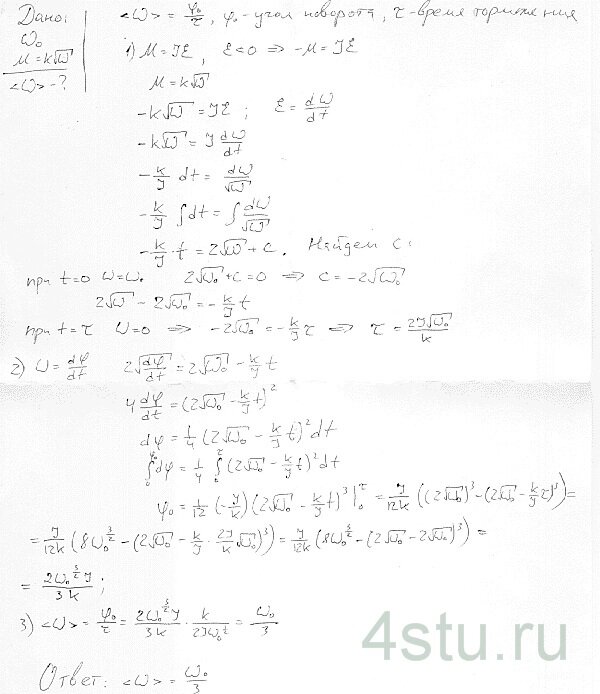 Дано:
ω₀
M=k√ω
<ω> - ?
<ω> = φ₀/τ, φ₀ - угол поворота, τ - время торможения
1) M=Jε, ε<0 ⇒ -M=Jε
M=k√ω
-k√ω=Jε; ε=dω/dt
-k√ω=J dω/dt
-k/J dt = dω/√ω
-k/J ∫dt = ∫dω/√ω
-k/J t = 2√ω+c. Найдем c:
при t=0 ω=ω₀ 2√ω₀+c=0 ⇒ c=-2√ω₀
2√ω - 2√ω₀ = -k/J t
при t=τ ω=0 ⇒ -2√ω₀ = -k/J τ ⇒ τ = 2J√ω₀/k
2) ω = dφ/dt 2√(dφ/dt) = 2√ω₀ - k/J t
4 dφ/dt = (2√ω₀ - k/J t)²
dφ = 1/4 (2√ω₀ - k/J t)² dt
∫₀^φ₀ dφ = 1/4 ∫₀^τ (2√ω₀ - k/J t)² dt
φ₀ = 1/12 (-J/k) (2√ω₀ - k/J t)³ |₀^τ = J/12k ((2√ω₀)³ - (2√ω₀ - k/J τ)³) =
= J/12k (8ω₀^(3/2) - (2√ω₀ - k/J · 2J/k √ω₀)³) = J/12k (8ω₀^(3/2) - (2√ω₀ - 2√ω₀)³) =
= 2ω₀^(3/2) J/3k ;
3) <ω> = φ₀/τ = 2ω₀^(3/2) J/3k · k/2Jω₀^(1/2) = ω₀/3
Ответ: <ω> = ω₀/3
4stu.ru